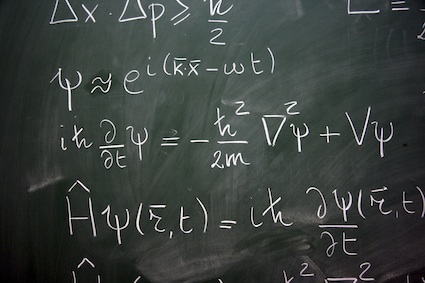 Δx · Δp ⩾ ħ/2
ψ ≈ e^{i(k̄·x̄ − ωt)}
iħ ∂/∂t ψ = −ħ²/2m ∇²ψ + Vψ
Ĥψ(r̄,t) = iħ ∂ψ(r̄,t)/∂t